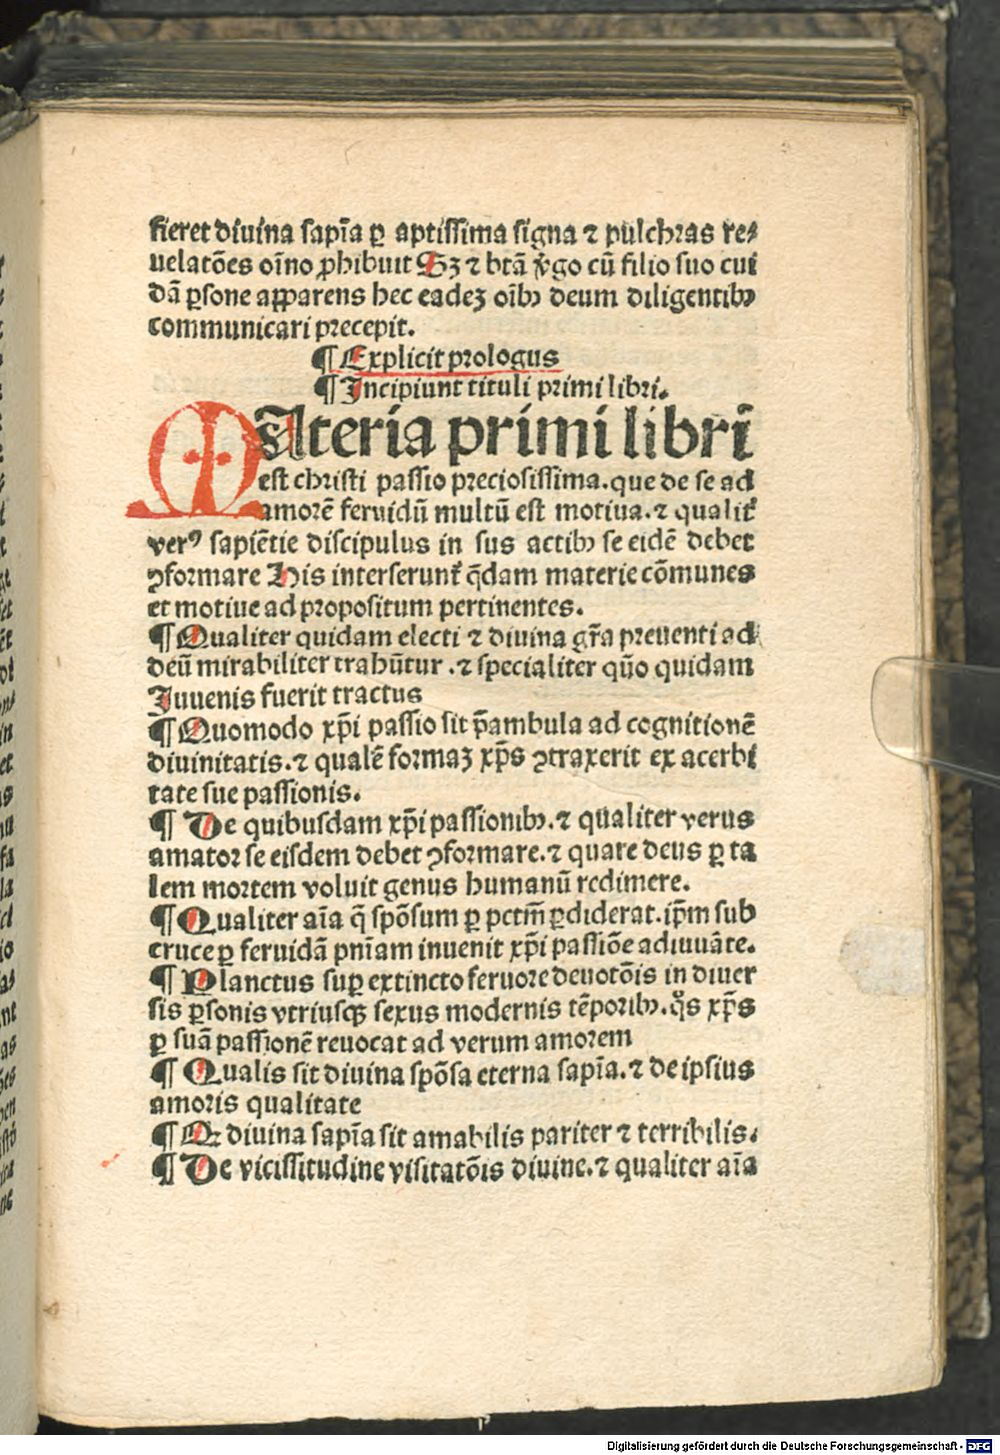 fieret diuina sapīa ꝑ aptissima signa ⁊ pulchras re⸗
uelatōes oīno ꝓhibuit Sꝫ ⁊ btā v̄go cū filio suo cui
dā ꝑsone apparens hec eadeꝫ oībꝰ deum diligentibꝰ
communicari precepit.
¶ Explicit prologus
¶ Incipiunt tituli primi libri.
MAteria primi libri
est christi passio preciosissima. que de se ad
amorē feruidū multū est motiua. ⁊ qualiť
verꝰ sapiētie discipulus in sus actibꝰ se eidē debet
ꝯformare His interserunť q̄dam materie cōmunes
et motiue ad propositum pertinentes.
¶ Qualiter quidam electi ⁊ diuina gr̄a preuenti ad
deū mirabiliter trahūtur . ⁊ specialiter quō quidam
Iuuenis fuerit tractus
¶ Quomodo xp̄i passio sit p̄ambula ad cognitionē
diuinitatis. ⁊ qualē formaꝫ xp̄s ꝯtraxerit ex acerbi
tate sue passionis.
¶ De quibusdam xp̄i passionibꝰ. ⁊ qualiter verus
amator se eisdem debet ꝯformare. ⁊ quare deus ꝑ ta
lem mortem voluit genus humanū redimere.
¶ Qualiter aīa q̄ spōsum ꝑ pctm̄ ꝑdiderat. ip̄m sub
cruce ꝑ feruidā pnīam inuenit xp̄i passiōe adiuuāte.
¶ Planctus suꝑ extincto feruore deuotōis in diuer
sis ꝑsonis vtriusqꝫ sexus modernis tēporibꝰ. qͦs xp̄s
ꝑ suā passionē reuocat ad verum amorem
¶ Qualis sit diuina spōsa eterna sapīa. ⁊ de ipsius
amoris qualitate
¶ Qꝫ diuina sapīa sit amabilis pariter ⁊ terribilis.
¶ De vicissitudine visitatōis diuine. ⁊ qualiter aīa
Digitalisierung gefördert durch die Deutsche Forschungsgemeinschaft - DFG